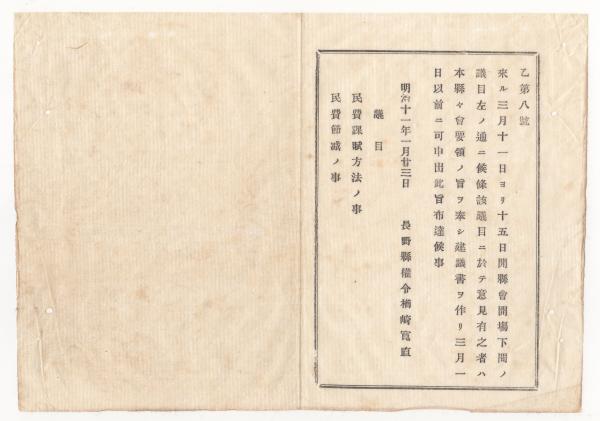 乙第八號
來ル三月十一日ヨリ十五日間縣會開塲下問ノ
議目左ノ通ニ候條該議目ニ於テ意見有之者ハ
本縣々會要領ノ旨ヲ奉シ建議書ヲ作リ三月一
日以前ニ可申出此旨布達候事
明治十一年一月廿三日　長野縣權令楢崎寬直
議目
民費課賦方法ノ事
民費節减ノ事